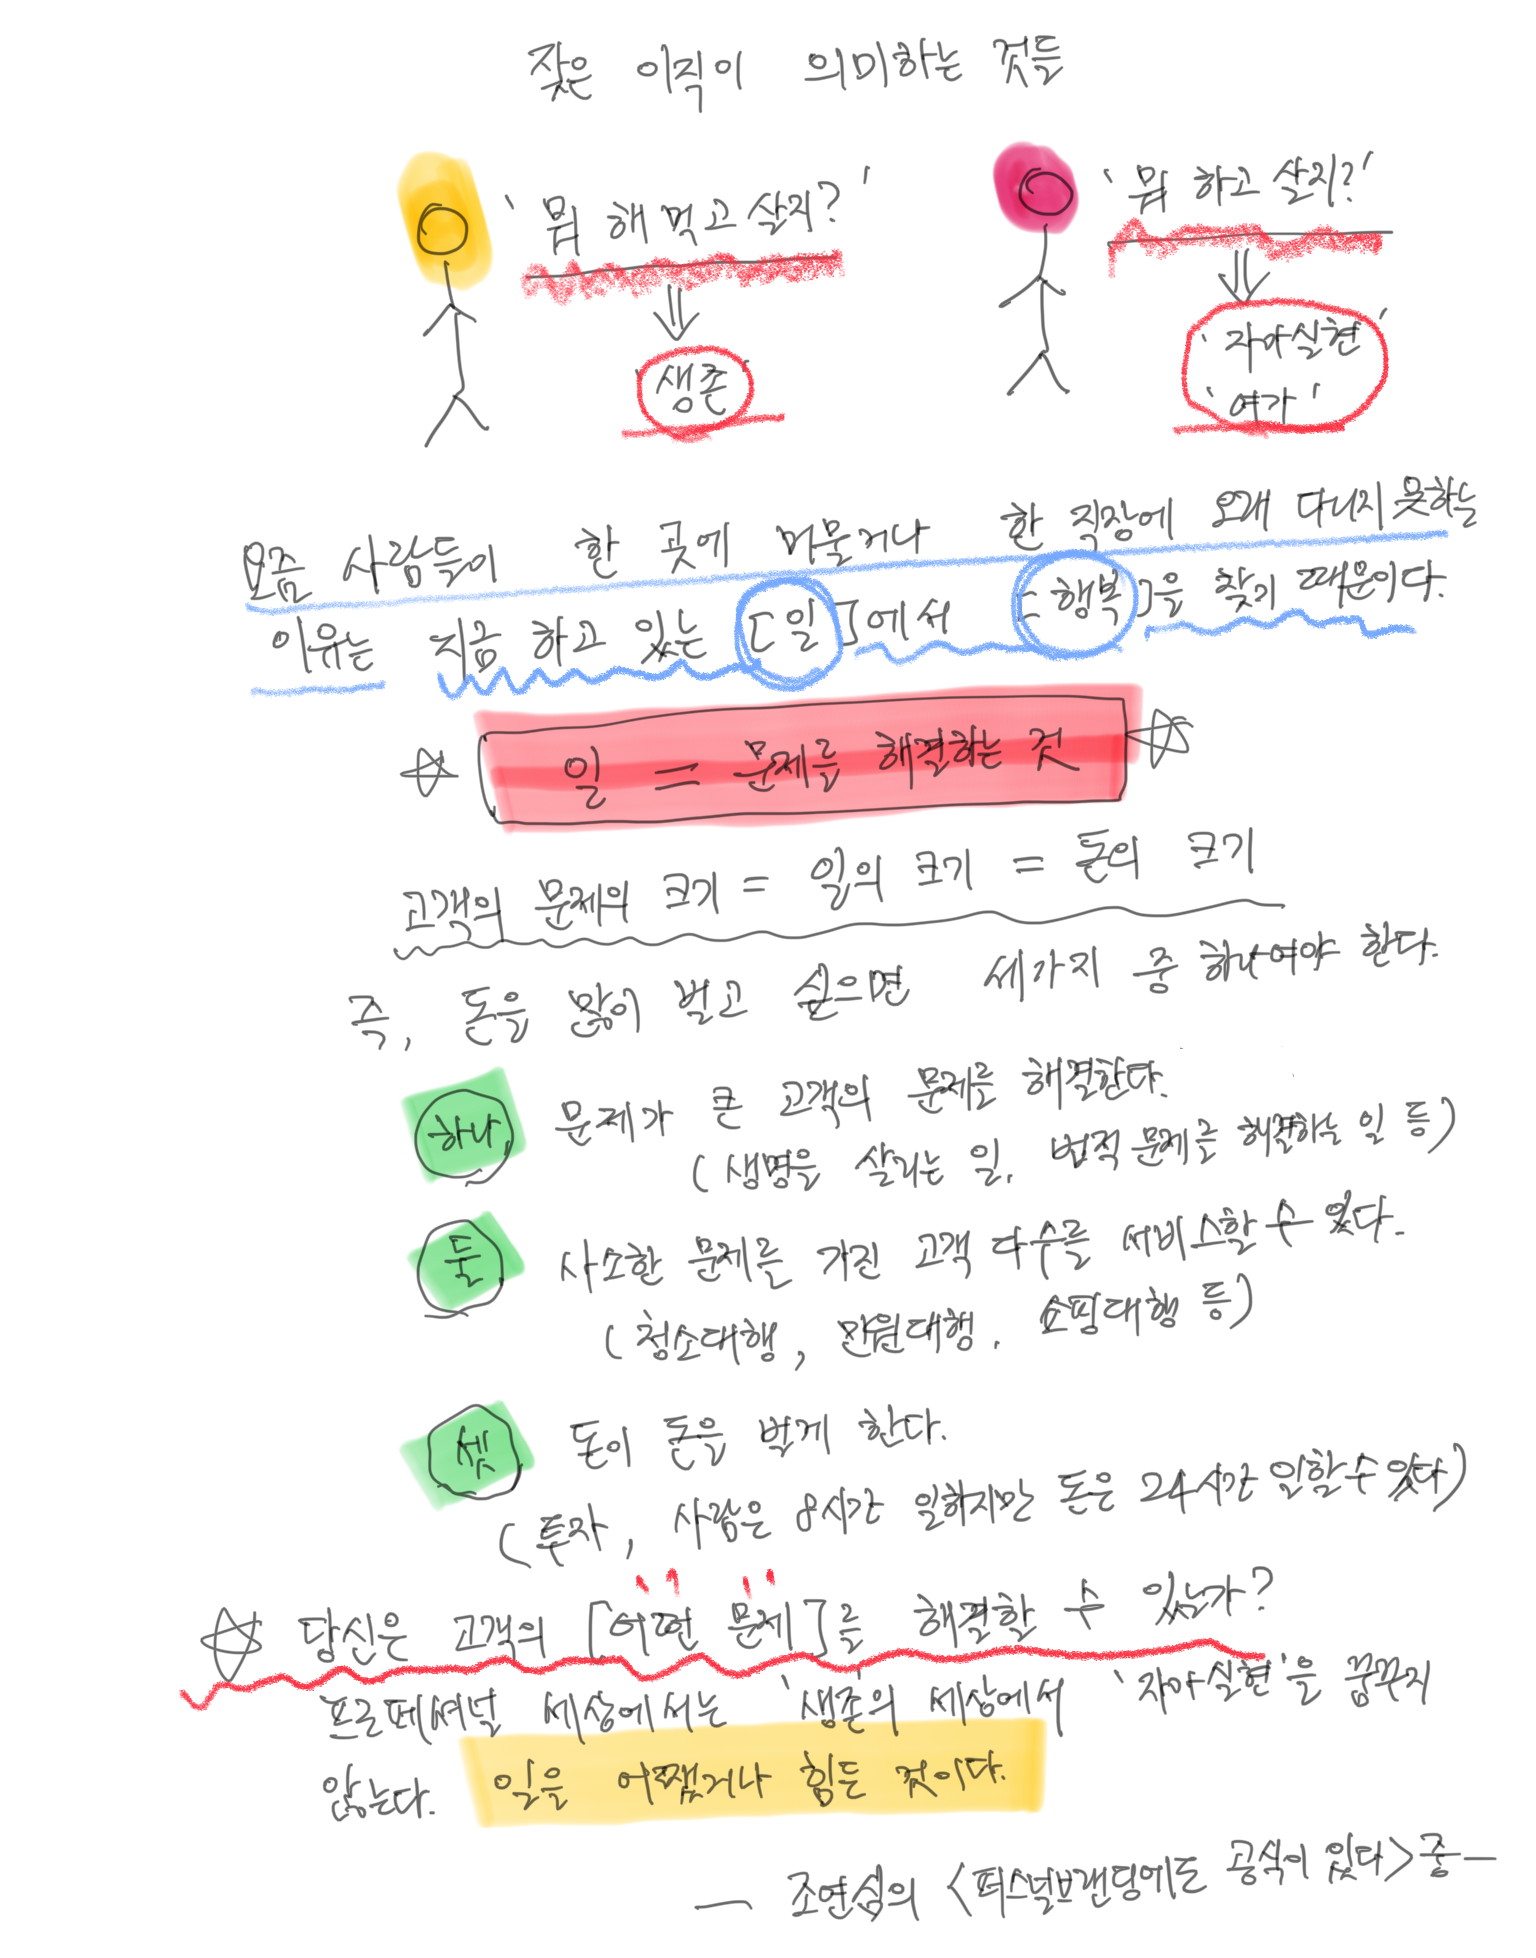 잦은 이직이 의미하는 것들
'뭐 해먹고 살지?'
'뭐 하고 살지?'
'생존'
'자아실현'
'여가'
요즘 사람들이 한 곳에 머물거나 한 직장에 오래 다니지 못하는
이유는 지금 하고 있는 [일]에서 [행복]을 찾기 때문이다.
일 = 문제를 해결하는 것
고객의 문제의 크기 = 일의 크기 = 돈의 크기
즉, 돈을 많이 벌고 싶으면 세가지 중 하나여야 한다.
하나 문제가 큰 고객의 문제를 해결한다.
(생명을 살리는 일, 법적 문제를 해결하는 일 등)
둘 사소한 문제를 가진 고객 다수를 서비스할 수 있다.
(청소대행, 민원대행, 쇼핑대행 등)
셋 돈이 돈을 벌게 한다.
(투자, 사람은 8시간 일하지만 돈은 24시간 일할 수 있다)
당신은 고객의 [어떤 문제]를 해결할 수 있는가?
프로페셔널 세상에서는 '생존'의 세상에서 '자아실현'을 꿈꾸지
않는다. 일은 어쨌거나 힘든 것이다.
— 조연심의 <퍼스널브랜딩에도 공식이 있다> 중 —